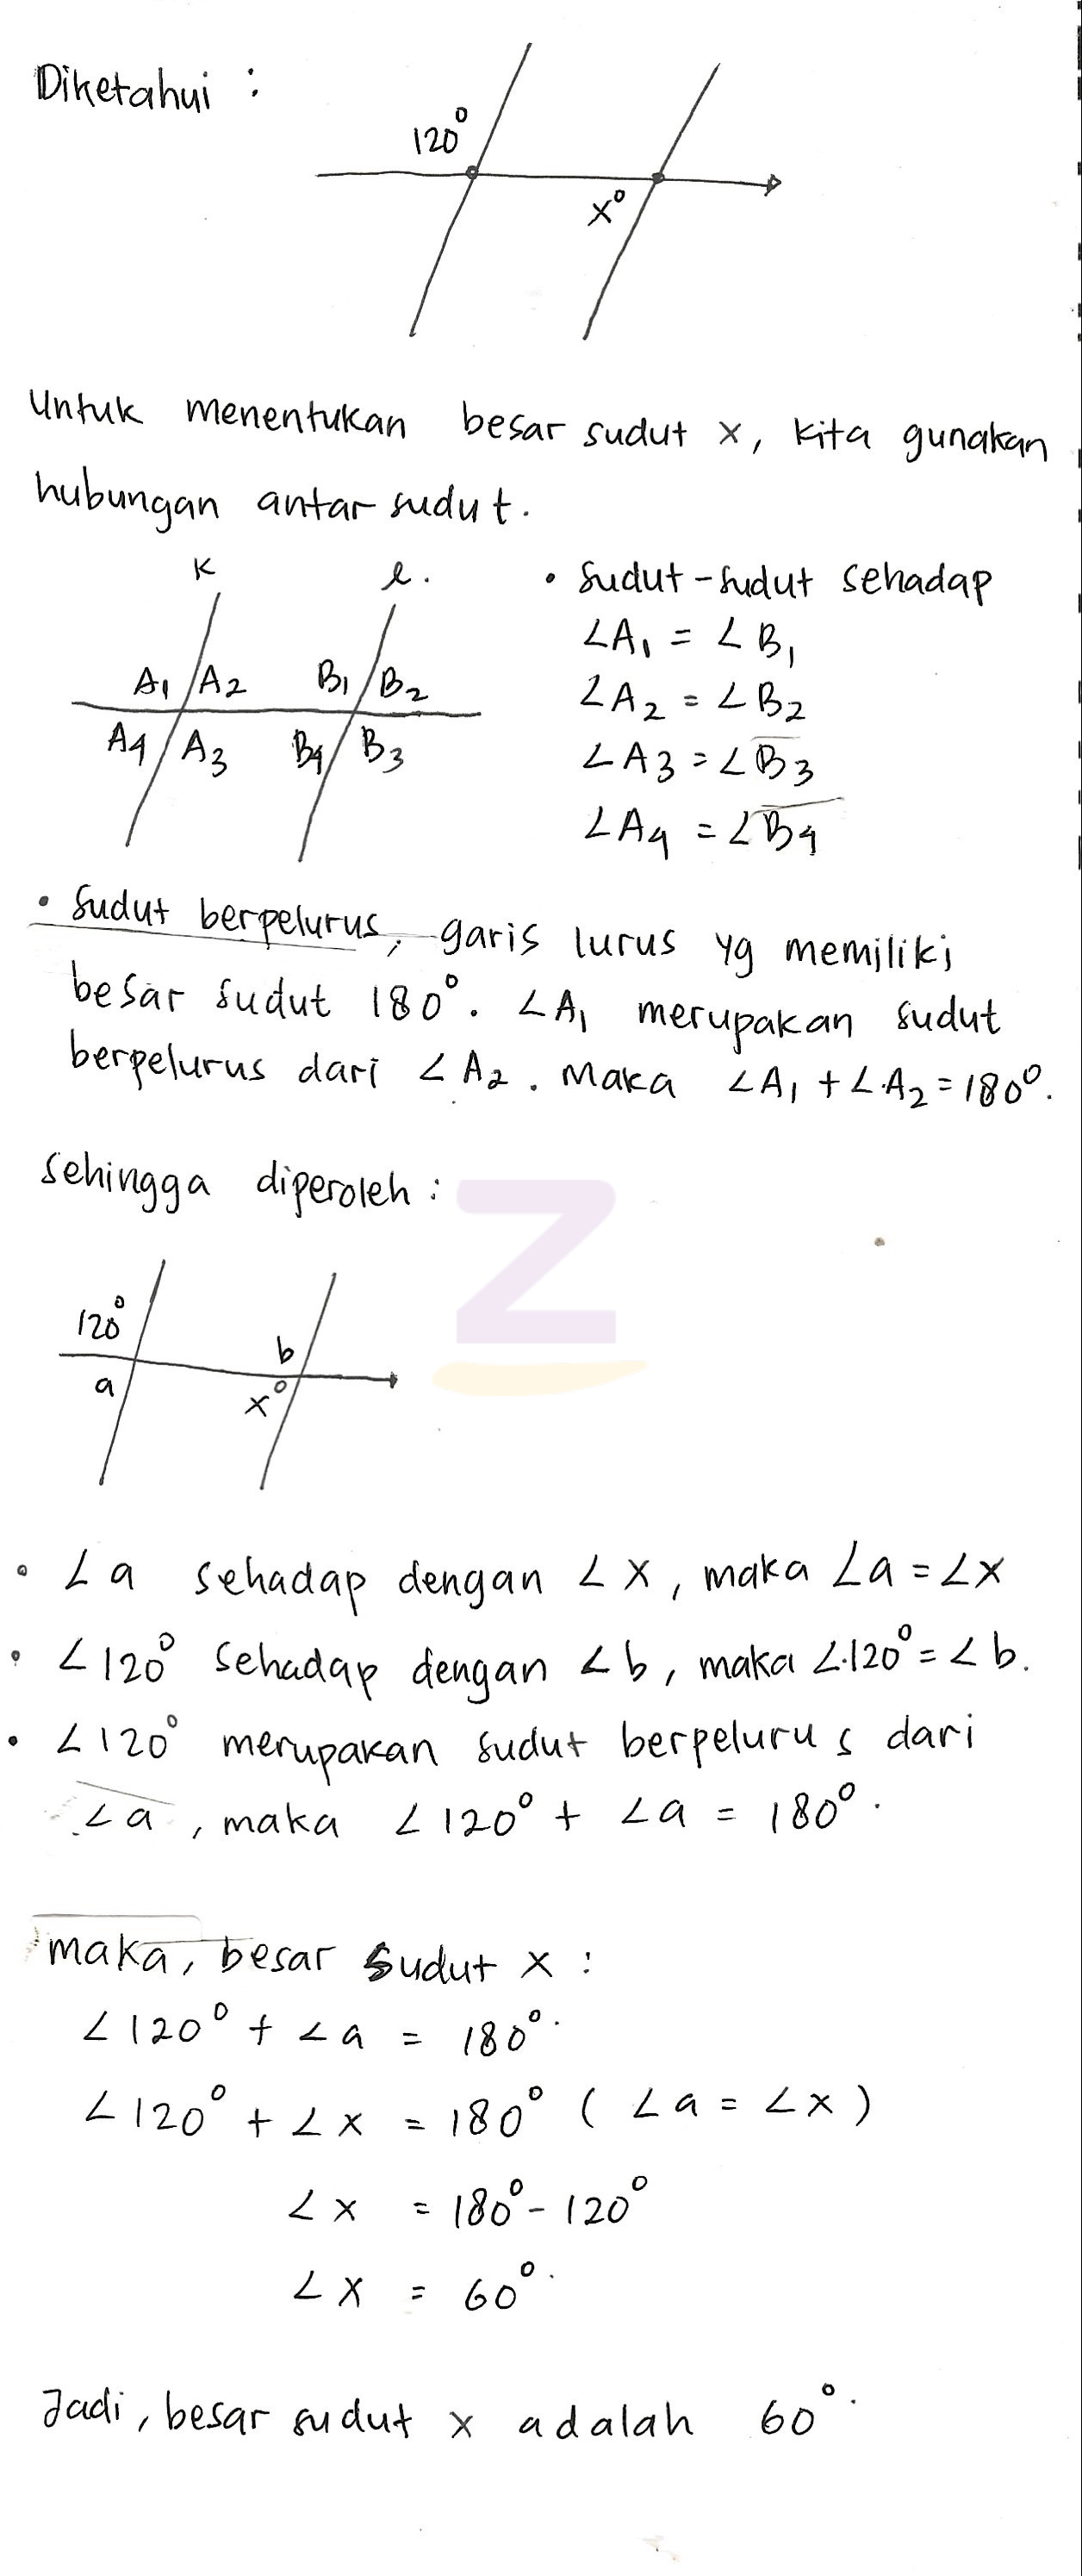 Diketahui :
120°
x°
Untuk menentukan besar sudut x, kita gunakan
hubungan antar sudut.
K
l.
A1 A2 B1 B2
A4 A3 B4 B3
• Sudut-sudut sehadap
∠A1 = ∠B1
∠A2 = ∠B2
∠A3 = ∠B3
∠A4 = ∠B4
• Sudut berpelurus, garis lurus yg memiliki
besar sudut 180°. ∠A1 merupakan sudut
berpelurus dari ∠A2. Maka ∠A1 + ∠A2 = 180°.
Sehingga diperoleh :
Z
120°
b
a
x°
• ∠a sehadap dengan ∠x, maka ∠a = ∠x
• ∠120° sehadap dengan ∠b, maka ∠120° = ∠b.
• ∠120° merupakan sudut berpelurus dari
∠a, maka ∠120° + ∠a = 180°.
maka, besar sudut x :
∠120° + ∠a = 180°.
∠120° + ∠x = 180° (∠a = ∠x)
∠x = 180° - 120°
∠x = 60°.
Jadi, besar sudut x adalah 60°.